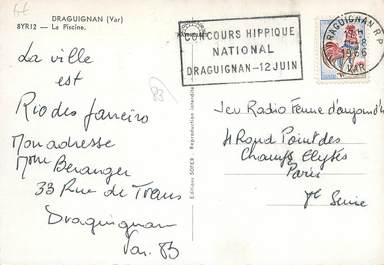 DRAGUIGNAN (Var)
8YR12 — La Piscine.
La ville
est
Rio des Janeiro
Mon adresse
Mme Beranger
33 Rue de Trans
Draguignan
Var. 83
83
Editions SOFER - Reproduction interdite
CONCOURS HIPPIQUE
NATIONAL
DRAGUIGNAN — 12 JUIN
DRAGUIGNAN R.P.
VAR
Jeu Radio
4 Rond Point des
Champs Elysées
Paris
Seine